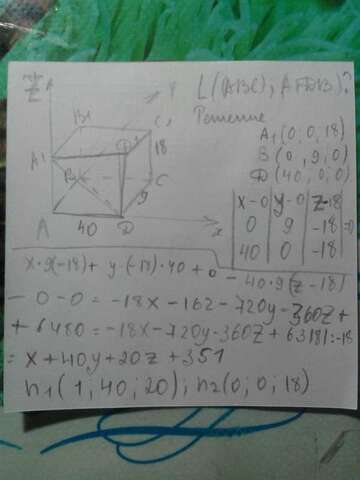 Z
Y
∠(ABC); A1DB)?
Решение
B1
C1
A1
D1
18
B
C
9
A
40
D
x
A1(0; 0; 18)
B(0; 9; 0)
D(40; 0; 0)
|x-0 y-0 z-18|
|0 9 -18|=0
|40 0 -18|
x·9(-18)+ y·(-18)·40+0 -40·9(z-18)
-0-0=-18x-162-720y-360z+
+6480=-18x-720y-360z+6318|:-18
=x+40y+20z+351
n1(1; 40; 20); n2(0; 0; 18)